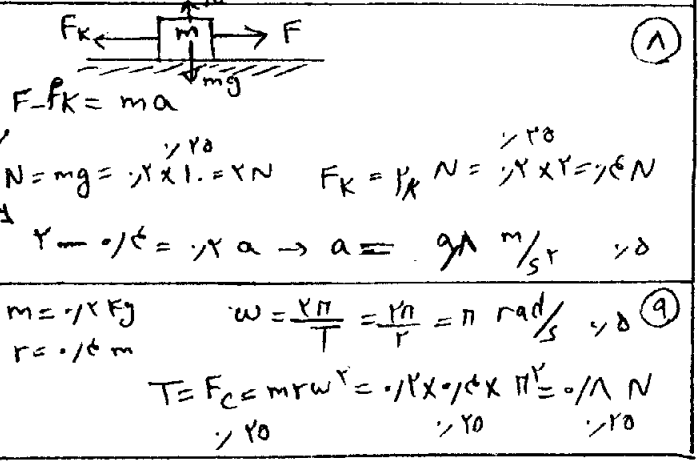 ۸
F_K m F
mg
F - f_K = ma
۰/۲۵ ۰/۲۵
N = mg = ۰/۲ × ۱۰ = ۲N F_K = μ_K N = ۰/۲ × ۲ = ۰/۴ N
۲ - ۰/۴ = ۰/۲ a → a = ۹۸ m/s۲ ۰/۵
۹
m = ۰/۲ kg ω = ۲π/T = ۲π/۲ = π rad/s ۰/۵
r = ۰/۴ m
T = F_c = mrω۲ = ۰/۲ × ۰/۴ × π۲ = ۰/۸ N
۰/۲۵ ۰/۲۵ ۰/۲۵